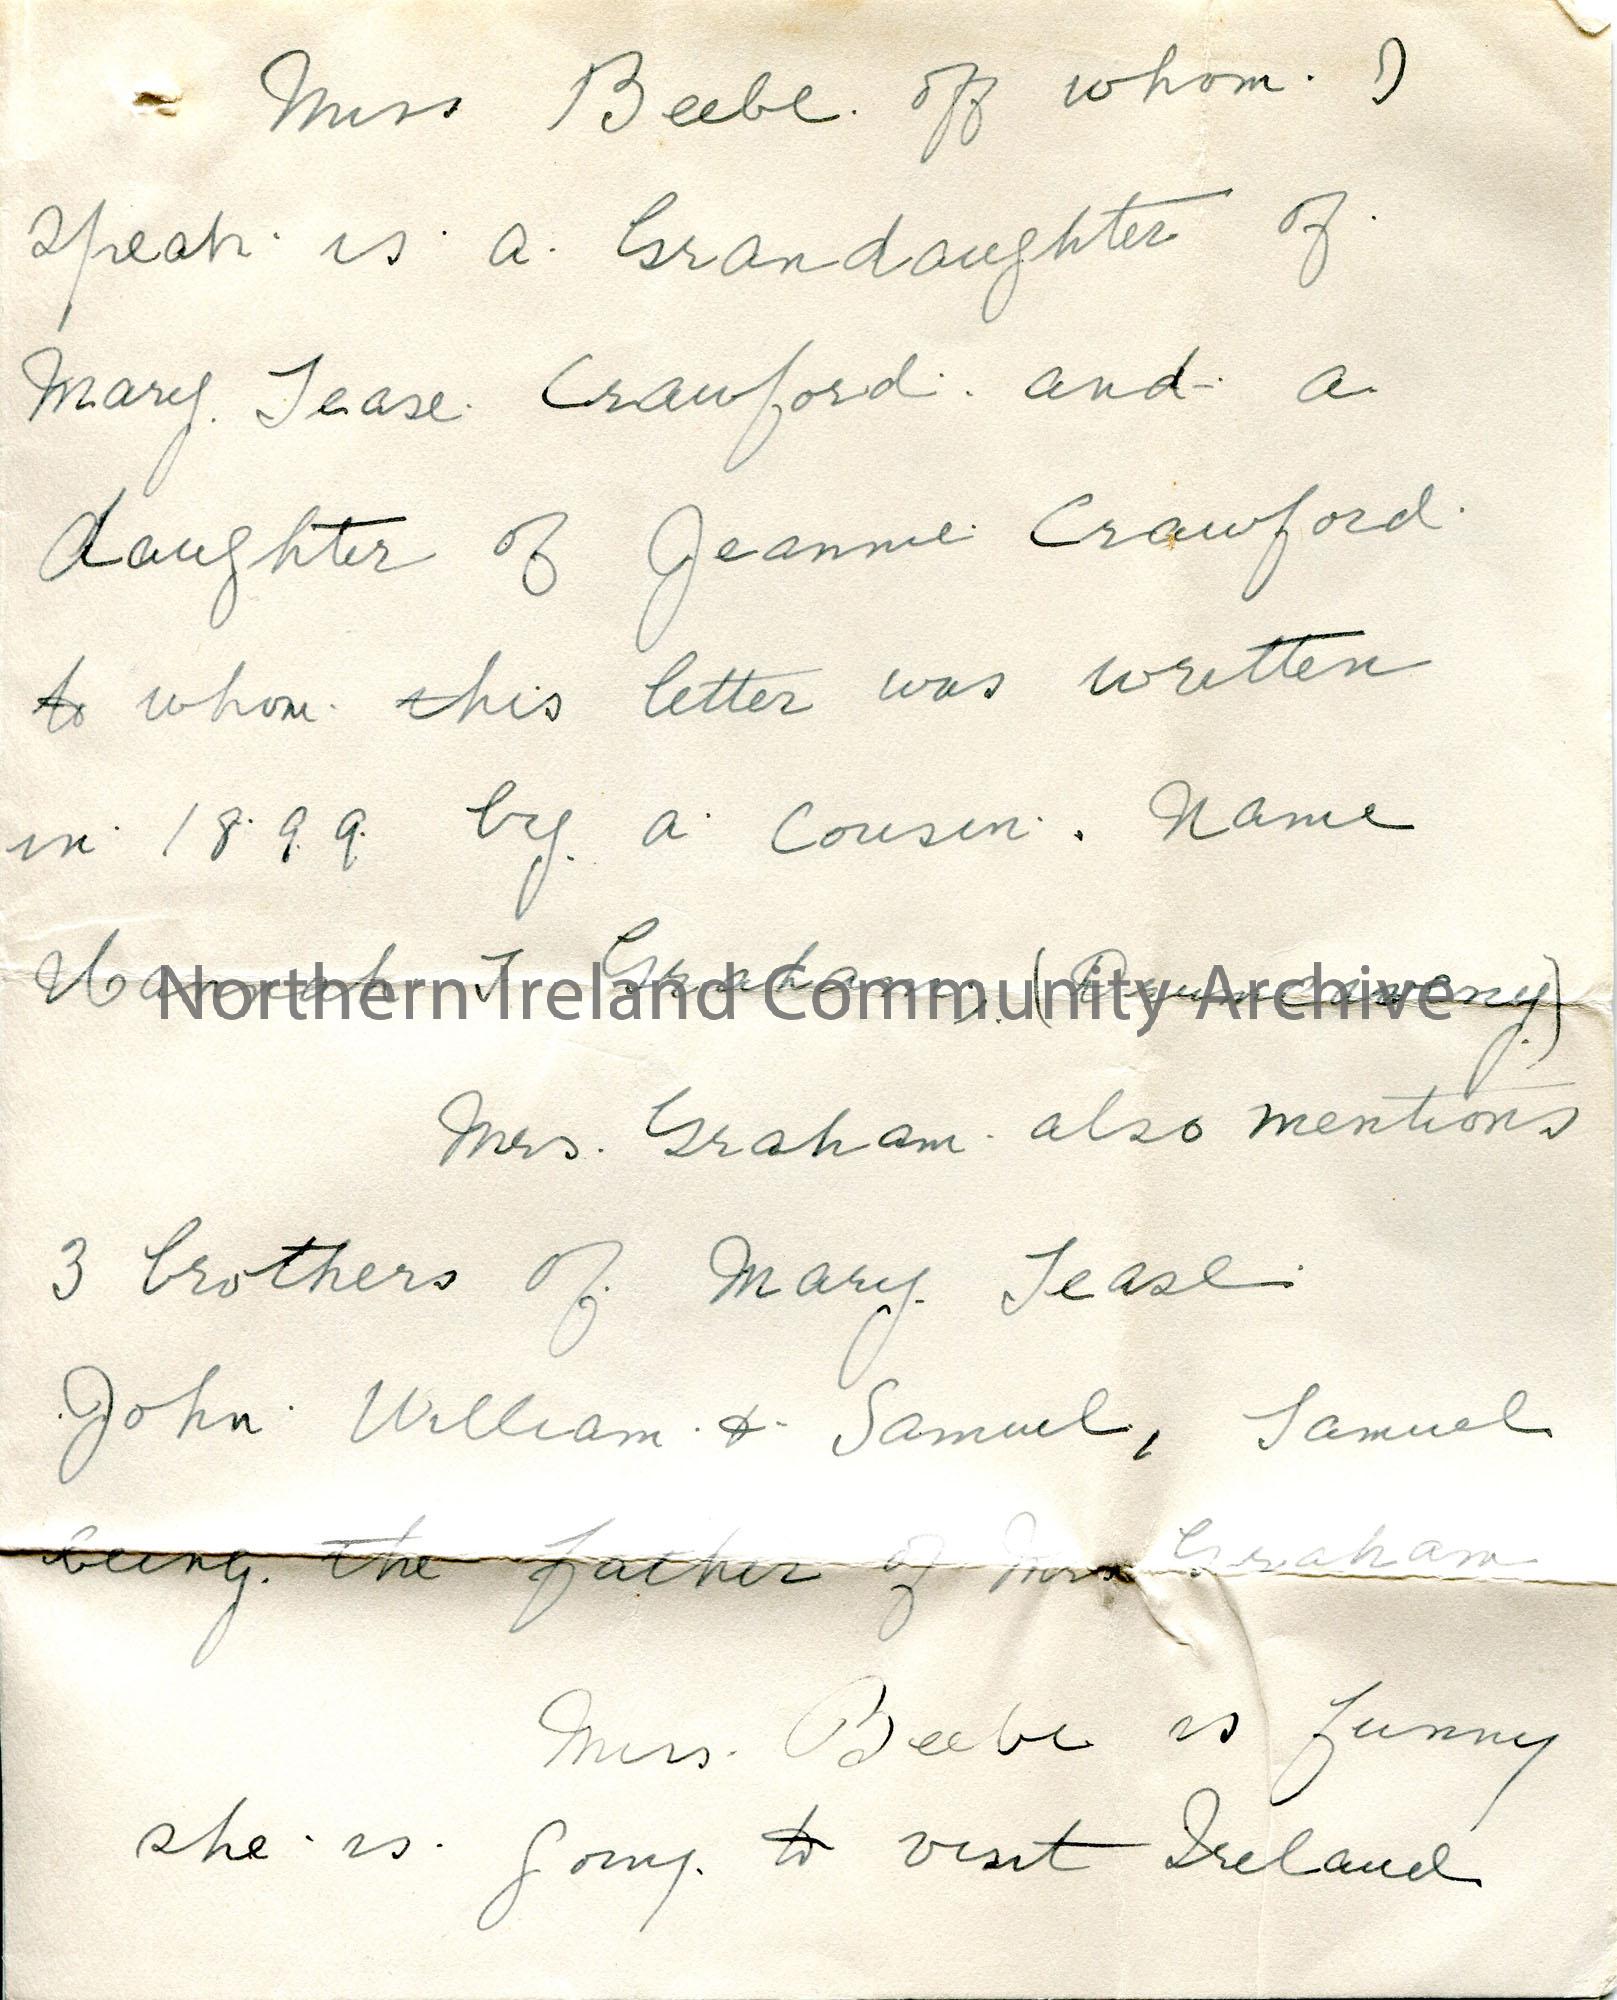 Miss Beebe. off whom. I
speak. is. a. Grandaughter of.
Mary. Tease. Crawford. and. a.
daughter of Jeannie Crawford.
to whom. this letter was written
in. 1899. by. a. Cousin. Name
Hannah T Graham, (
Northern Ireland Community Archive
Mrs. Graham. also mentions
3 brothers of. Mary. Tease.
John. William. & Samuel, Samuel
being. the father of Mrs Graham
Miss. Beebe is funny
she. is. going. to visit Ireland